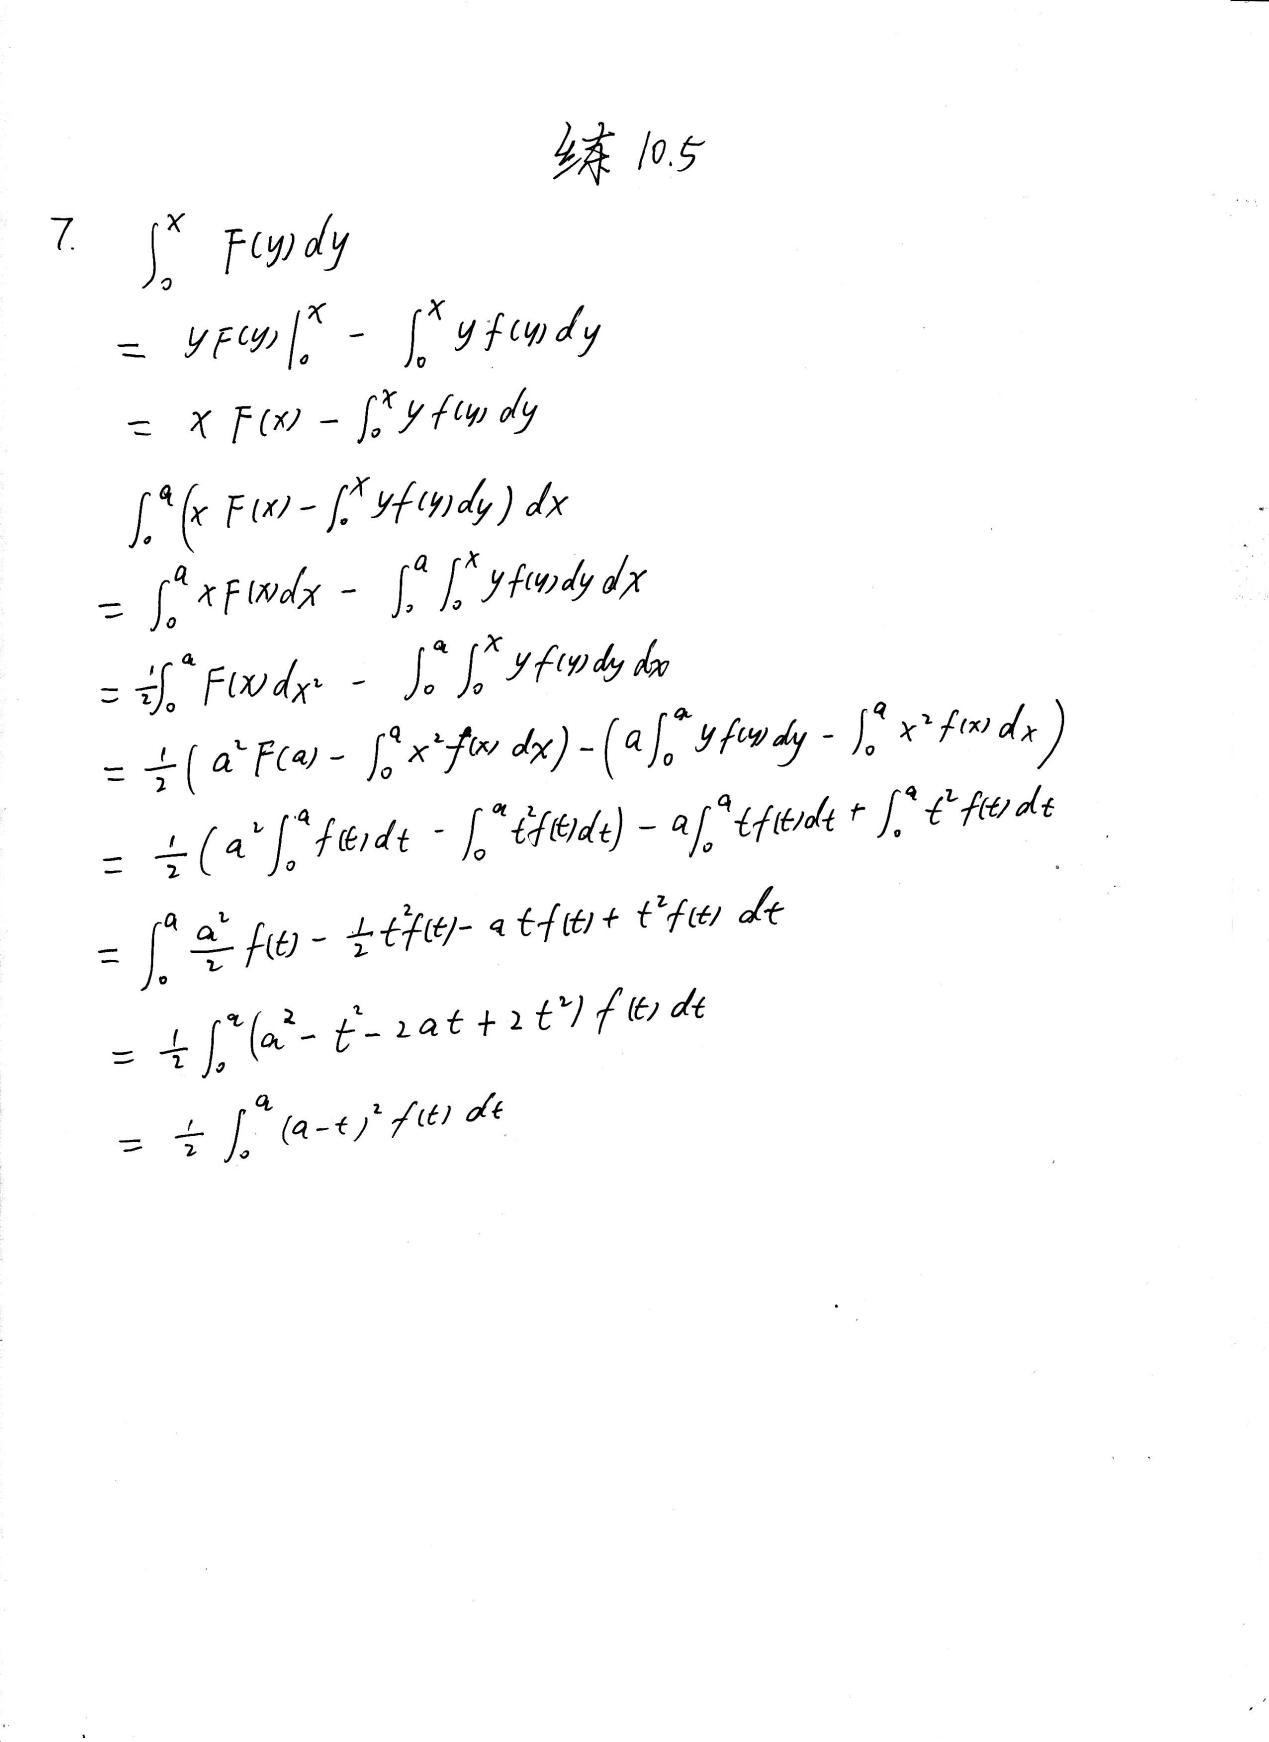 练 10.5
7. ∫₀ˣ F(y) dy
= yF(y)|₀ˣ - ∫₀ˣ y f(y) dy
= x F(x) - ∫₀ˣ y f(y) dy
∫₀ᵃ (x F(x) - ∫₀ˣ y f(y) dy) dx
= ∫₀ᵃ x F(x) dx - ∫₀ᵃ ∫₀ˣ y f(y) dy dx
= ½∫₀ᵃ F(x) dx² - ∫₀ᵃ ∫₀ˣ y f(y) dy dx
= ½ (a² F(a) - ∫₀ᵃ x² f(x) dx) - (a∫₀ᵃ y f(y) dy - ∫₀ᵃ x² f(x) dx)
= ½ (a² ∫₀ᵃ f(t) dt - ∫₀ᵃ t² f(t) dt) - a∫₀ᵃ t f(t) dt + ∫₀ᵃ t² f(t) dt
= ∫₀ᵃ a²/2 f(t) - ½ t² f(t) - a t f(t) + t² f(t) dt
= ½ ∫₀ᵃ (a² - t² - 2at + 2t²) f(t) dt
= ½ ∫₀ᵃ (a-t)² f(t) dt